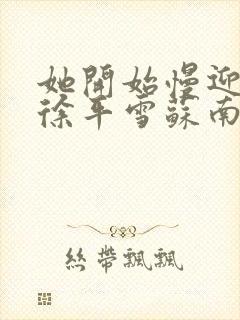 她開始慢迎
徐平雪蘇南
絲帶飄飄